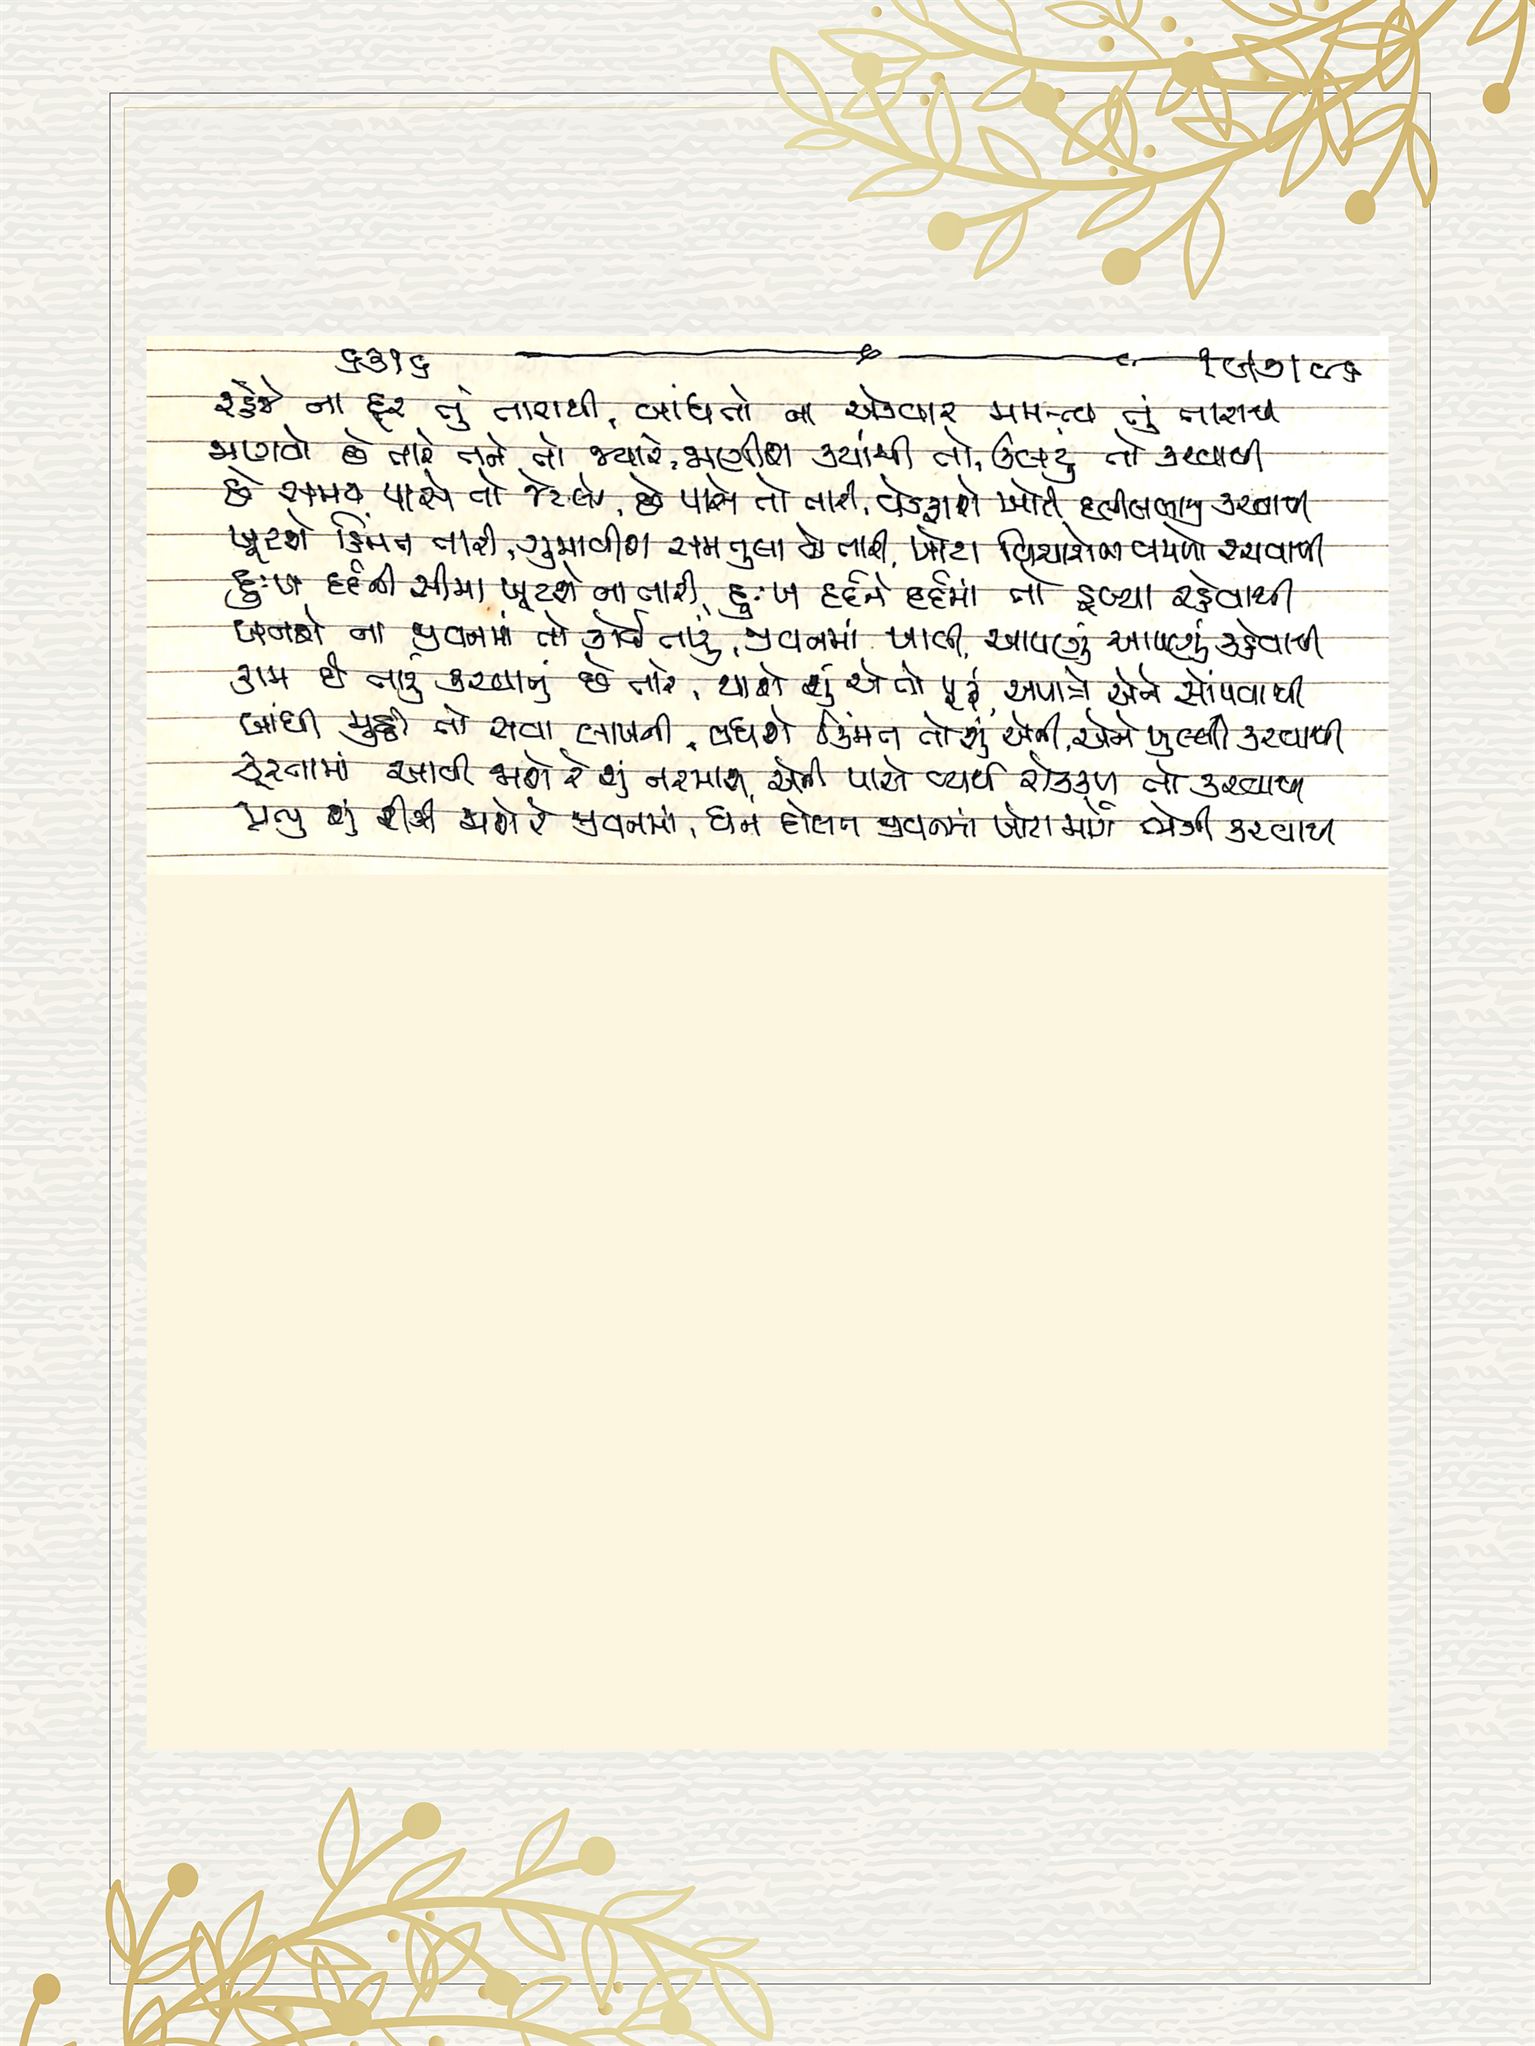 ૬૩૧૬ ૧૫/૭/૯૬
રહેજે ના દૂર તું તારાથી, બાંધતો ના એકવાર મમત્વ તું તારાથી
મળવો છે તારે તને તો જ્યારે, મળીશ ક્યાંથી તો, ઉલટું તો કરવાથી
છે સમય પાસે તો જેટલો, છે પાસે તો તારી, વેડફાશે ખોટી કરવાથી
ખૂટશે કિંમત તારી, ગુમાવીશ સમતુલા જો તારી, ખોટા વિચારોના વમળો રચવાથી
દુઃખ દર્દની સીમા ખૂટશે ના તારી, દુઃખ દર્દને દર્દમાં તો ડૂબ્યા રહેવાથી
બનશે ના જીવનમાં તો કોઈ તારું, જીવનમાં ખાલી, આપણું આપણું કહેવાથી
કામ છે તારું કરવાનું છે તારે, થાશે શું એ તો પૂરું, અપાત્રે એને સોંપવાથી
બાંધી મુઠ્ઠી તો સવા લાખની, વધશે કિંમત તો શું એની, એને ખુલ્લી કરવાથી
ક્રૂરતામાં આવી જાશે રે શું નરમાશ, એની પાસે વ્યર્થ રોકકળ તો કરવાથી
મૃત્યુ શું રીઝી જાશે રે જીવનમાં, ધન દોલત જીવનમાં ખોટા માર્ગે ભેગી કરવાથી